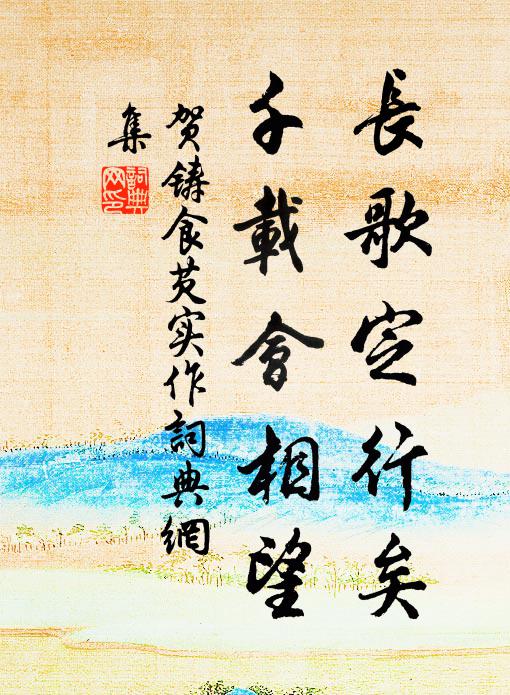 長歌定行矣
千載會相望
贺鑄食芡实作詞典網
集
詞典
网印